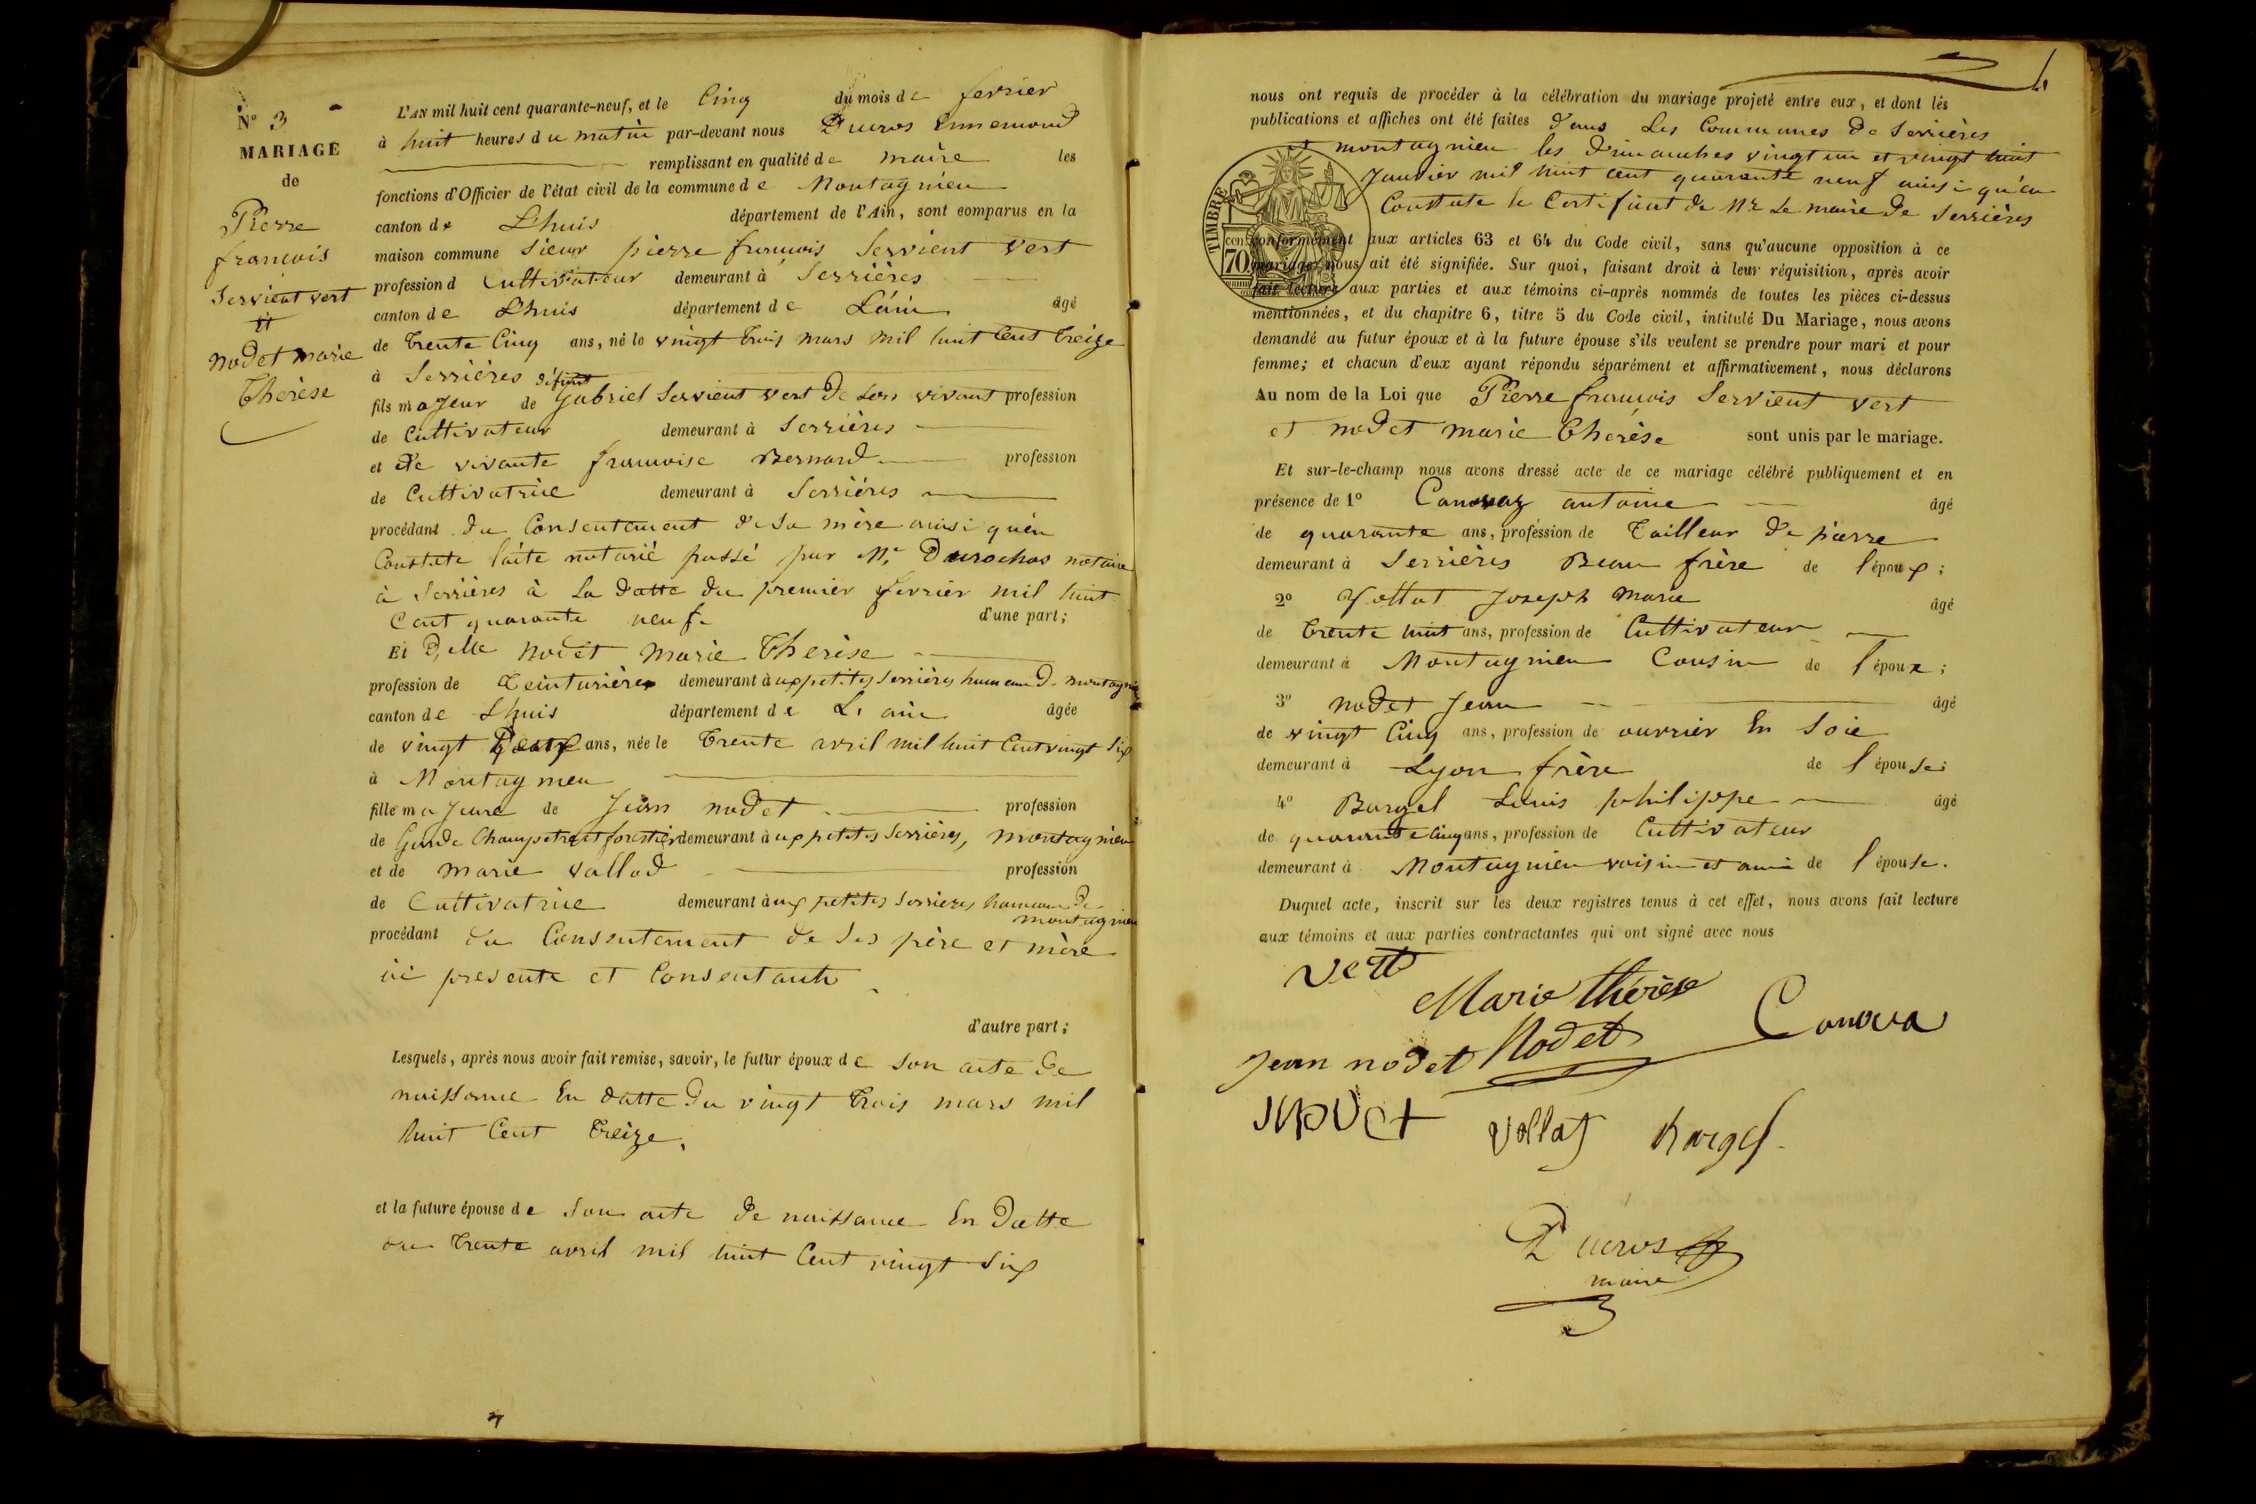 N° 3
MARIAGE
de
Pierre
françois
Servient vert
et
nodet marie
Thérèse
L'AN mil huit cent quarante-neuf, et le Cinq du mois de fevrier
à huit heures du matin par-devant nous Ducros Ennemond
remplissant en qualité de maire les
fonctions d'Officier de l'état civil de la commune de Montagnieu
canton de Lhuis département de l'Ain, sont comparus en la
maison commune Sieur pierre françois Servient vert
profession d Cultivateur demeurant à Serrières
canton de Lhuis département de L'ain âgé
de trente Cinq ans, né le vingt trois mars mil huit Cent treize
à Serrières
fils majeur de défunt Gabriel Servient vert de son vivant profession
de Cultivateur demeurant à Serrières
et de vivante françoise Bernard profession
de Cultivatrice demeurant à Serrières
procédant du Consentement de sa mère ainsi qu'en
Constate l'acte notarié passé par Me Durochas notaire
à Serrières à La datte du premier fevrier mil huit
Cent quarante neuf. d'une part;
Et Delle Nodet Marie Thérèse
profession de teinturière demeurant à ux petites Serrières hameau de montagnieu
canton de Lhuis département de L'ain âgée
de vingt deux ans, née le trente avril mil huit Cent vingt six
à Montagnieu
fille majeure de Jean nodet profession
de Garde Champetre et forestier demeurant à ux petites Serrières, montagnieu
et de marie vallod profession
de Cultivatrice demeurant à ux petites Serrières hameau de
montagnieu
procédant du Consentement de ses père et mère
ici presente et Consentante
d'autre part;
Lesquels, après nous avoir fait remise, savoir, le futur époux de son acte de
naissance En datte du vingt trois mars mil
huit Cent treize.
et la future épouse de son acte de naissance En datte
du trente avril mil huit Cent vingt six
nous ont requis de procéder à la célébration du mariage projeté entre eux, et dont les
publications et affiches ont été faites dans Les Communes de Serrières
et montagnieu les dimanches vingt un et vingt huit
Janvier mil huit cent quarante neuf ainsi qu'en
Constate le Certificat de Mr Le maire de Serrières
TIMBRE
70 cen
conformément aux articles 63 et 64 du Code civil, sans qu'aucune opposition à ce
mariage nous ait été signifiée. Sur quoi, faisant droit à leur réquisition, après avoir
fait lecture aux parties et aux témoins ci-après nommés de toutes les pièces ci-dessus
mentionnées, et du chapitre 6, titre 5 du Code civil, intitulé Du Mariage, nous avons
demandé au futur époux et à la future épouse s'ils veulent se prendre pour mari et pour
femme; et chacun d'eux ayant répondu séparément et affirmativement, nous déclarons
Au nom de la Loi que Pierre françois Servient vert
et nodet marie Thérèse sont unis par le mariage.
Et sur-le-champ nous avons dressé acte de ce mariage célébré publiquement et en
présence de 1° Canovaz antoine âgé
de quarante ans, profession de Tailleur de pierre
demeurant à Serrières Beau frère de l'époux;
2° Vollat Joseph Marie âgé
de trente huit ans, profession de Cultivateur
demeurant à Montagnieu Cousin de l'époux;
3° nodet Jean âgé
de vingt Cinq ans, profession de ouvrier En Soie
demeurant à Lyon frère de l'épouse;
4° Bargel Louis philippe âgé
de quarante Cinq ans, profession de Cultivateur
demeurant à Montagnieu voisin et ami de l'épouse.
Duquel acte, inscrit sur les deux registres tenus à cet effet, nous avons fait lecture
aux témoins et aux parties contractantes qui ont signé avec nous
vert
Marie thérèse
Nodet
Canova
Jean nodet
Vollat
Bargel
Ducros
maire